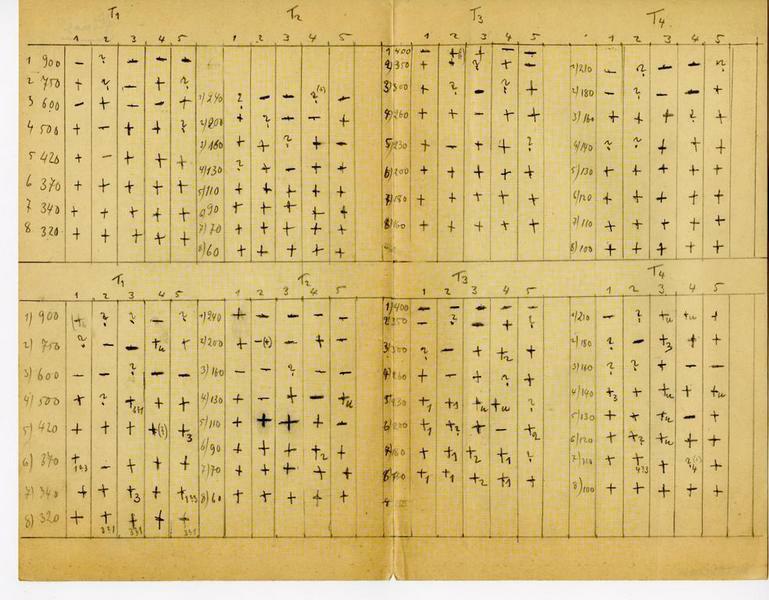 T1 T2 T3 T4
1 2 3 4 5 1 2 3 4 5 1 2 3 4 5 1 2 3 4 5
1 900 − ? − − −
2 750 + ? − + ?
3 600 − + − − +
4 500 + − + + ?
5 420 + − + + +
6 370 + + + + +
7 340 + + + + +
8 320 + + + + +
1)240 ? − − ? −
2)200 + ? − − +
3)160 + + ? + −
4)130 ? + − + +
5)110 + + + + +
6)90 + + + + +
7)70 + + + + +
8)60 + + + + +
1)400 − + + − −
2)350 + − ? + −
3)300 + ? − ? +
4)260 + + − + +
5)230 + − + + ?
6)200 + + + + +
7)180 + + + + +
8)160 + + + + +
1)210 − ? − − ?
2)180 − ? − − −
3)160 + + + ? +
4)140 ? ? + + +
5)130 + + + + +
6)120 + + + + +
7)110 + + + + +
8)100 + + + + +
T1 T2 T3 T4
1 2 3 4 5 1 2 3 4 5 1 2 3 4 5 1 2 3 4 5
1) 900 ? ? − ?
2) 750 ? − − +4 +
3) 600 − − ? − −
4) 500 + ? + + +
5) 420 + + + +3
6) 370 + − + + +
7) 340 + + +3 +
8) 320 + + + + +
1)240 + − − − −
2)200 + −(+) − + −
3)160 − − ? − −
4)130 + − + − +4
5)110 + + + + −
6)90 + + + +2 +
7)70 + + + + +
8)60 + + + + +
1)400 − − − − −
2)350 − ? − + ?
3)300 ? − + +2 +
4)260 + − + ? +
5)230 +1 +1 +4 +4 ?
6)200 +1 +2 + − +2
+1 +2 +2 +1 +
+1 +1 +2 +1 +
1)210 − ? +4 +4 +
2)180 ? − +3 + +
3)160 ? ? + − +
4)140 +3 + +4 + +
5)130 + + +4 − +
6)120 + +2 +4 + +
7)110 + + + +
8)100 + + + + +